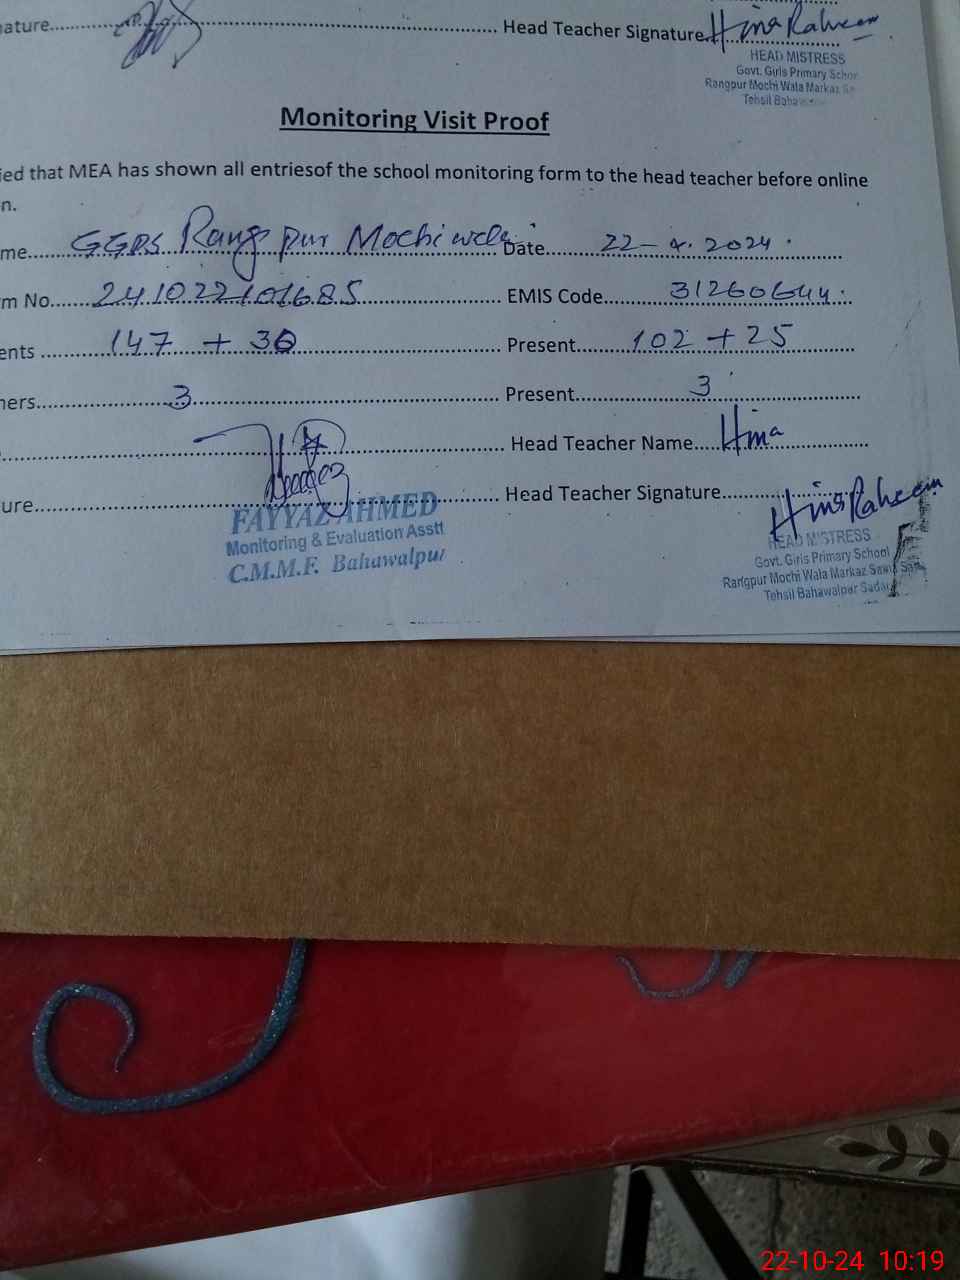 ature.......... Head Teacher Signature. Hina Raheem
HEAD MISTRESS
Govt. Girls Primary School
Rangpur Mochi Wala Markaz Sa
Tehsil Bahaw
Monitoring Visit Proof
ied that MEA has shown all entriesof the school monitoring form to the head teacher before online
n.
me.......... GGPS Rangpur Mochiwala Date.......... 22-4.2024.
m No.......... 241022101685 .......... EMIS Code.......... 31260644.
ents .......... 147 + 30 .......... Present.......... 102 + 25
hers.......... 3 .......... Present.......... 3
.......... Head Teacher Name.... Hina
ure.......... Head Teacher Signature.......... Hina Raheem
FAYYAZ AHMED
Monitoring & Evaluation Asstt
C.M.M.F. Bahawalpur
HEAD MISTRESS
Govt. Girls Primary School
Rangpur Mochi Wala Markaz
Tehsil Bahawalpur Sadar
22-10-24 10:19